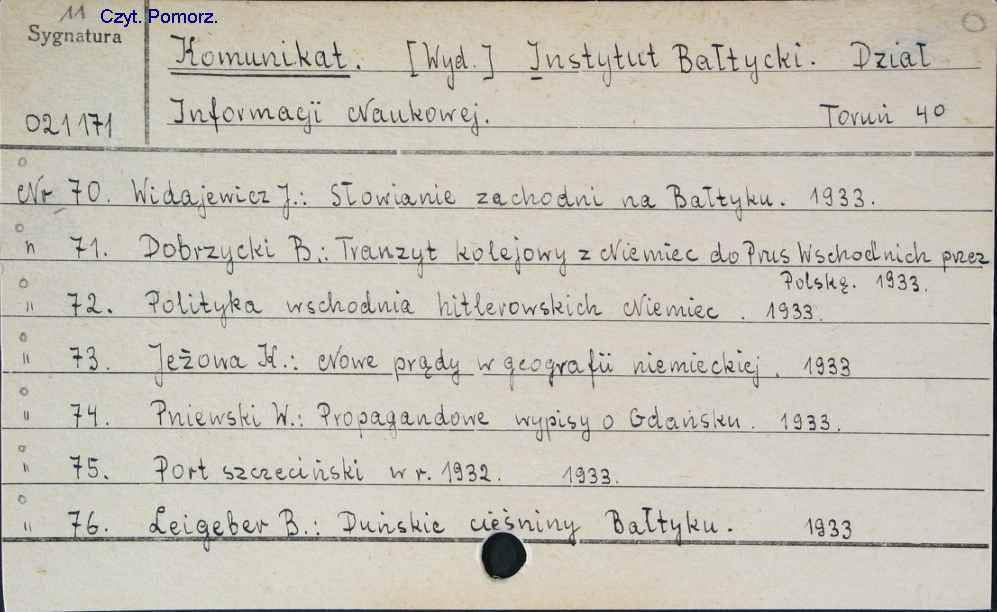 11 Czyt. Pomorz.
Sygnatura
Komunikat. [Wyd.] Instytut Bałtycki. Dział
021171 Informacji Naukowej. Toruń 40
Nr 70. Widajewicz J.: Słowianie zachodni na Bałtyku. 1933.
" 71. Dobrzycki B.: Tranzyt kolejowy z Niemiec do Prus Wschodnich przez
Polskę. 1933.
" 72. Polityka wschodnia hitlerowskich Niemiec. 1933.
" 73. Jeżowa K.: Nowe prądy w geografii niemieckiej. 1933
" 74. Pniewski W.: Propagandowe wypisy o Gdańsku. 1933.
" 75. Port szczeciński w r. 1932. 1933.
" 76. Leigeber B.: Duńskie cieśniny Bałtyku. 1933